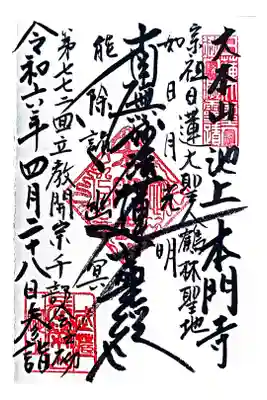 大本山 池上本門寺
宗祖日蓮大聖人鶴林聖地
如日月光明
南無妙法蓮華経
能除諸幽冥
第七七二回立教開宗千部会
令和六年四月二十八日参詣